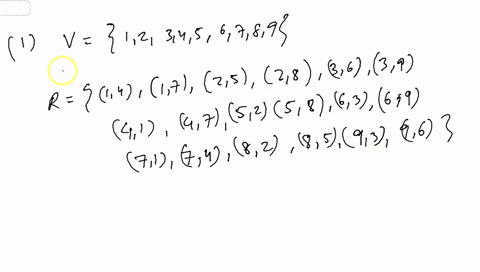 (1) V = { 1,2, 3,4,5, 6,7,8,9}
R = { (1,4), (1,7), (2,5), (2,8), (3,6), (3,9)
(4,1), (4,7), (5,2) (5,8), (6,3), (6,9)
(7,1), (7,4), (8,2), (8,5), (9,3), (9,6) }